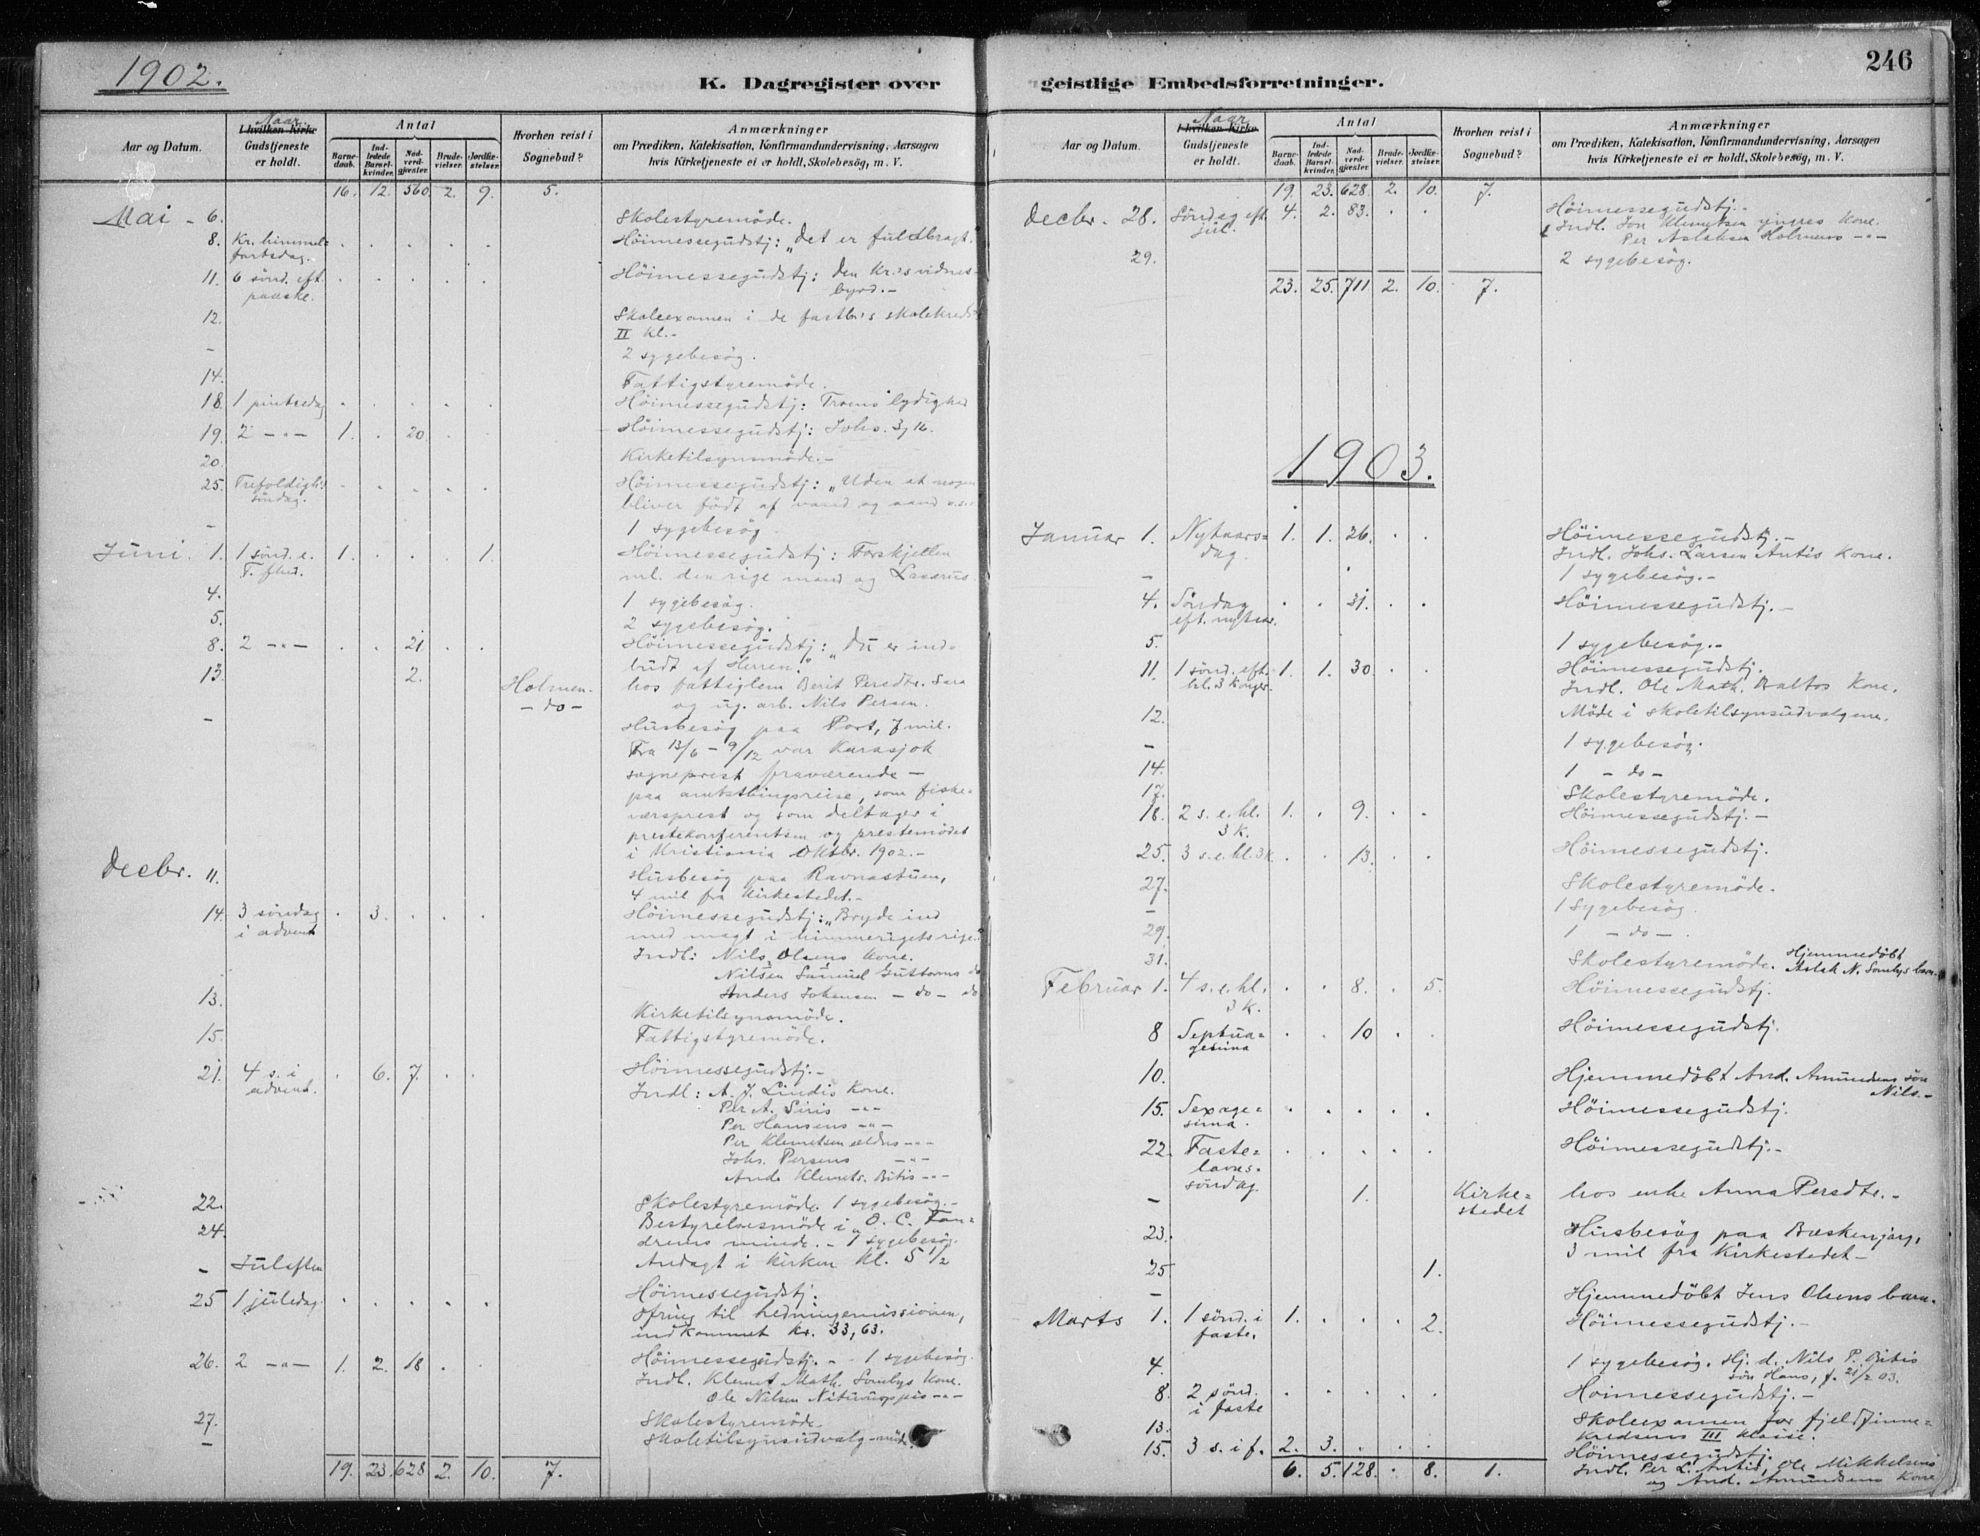 1902.
K. Dagregister over
Aar og Datum.
I hvilken Kirke
Naar
Gudstjeneste
er holdt.
Antal
Barne-
daab.
Ind-
ledede
Barsel-
kvinder.
Nad-
verd-
gjester.
Brude-
vielser.
Jordfæ-
stelser.
Hvorhen reist i
Sognebud?
Anmærkninger
om Prædiken, Katekisation, Konfirmandundervisning, Aarsagen
hvis Kirketjeneste ei er holdt, Skolebesög, m. V.
16. 12. 560. 2. 9. 5.
Mai - 6. Skolestyremöde.
8. Kr. himmel- . . . . . Höimessegudstj: "Det er fuldbragt."
fartsdag.
11. 6 sönd. eft. . . . . . Höimessegudstj: Den Kr.s vidnes-
paaske. byrd. -
12. Skoleexamen i de fastb.s skolekreds
II kl. -
- 2 sygebesög.
14. Fattigstyremöde.
18. 1 pintsedag . . . . . Höimessegudstj: Troens lydighed
19. 2 -"- 1. . 20. . . Höimessegudstj: Johs. 3, 16.
20. Kirketilsynsmöde. -
25. Trefoldigh.s . . . . . Höimessegudstj: "Uden at nogen
söndag. bliver född af vand og aand o.s.v.
- 1 sygebesög
Juni. 1. 1 sönd. e. 1. . . . 1. Höimessegudstj: Forskjellen
T.fhed. ml. den rige mand og Lasarus.
4. 1 sygebesög.
5. 2 sygebesög.
8. 2 -"- . . 21. . . Höimessegudstj: "Du er ind-
budt af Herren."
13. 2. Holmen. hos fattiglem Berit Persdtr. Sara
- do - og ug. arb. Nils Persen.
- Husbesög paa Port, 7 mil.
Fra 13/6 - 9/12 var Karasjok
sogneprest fraværende -
paa amtstingsreise, som fiske-
værsprest og som deltager i
prestekonferentsen og prestemödet
i Kristiania Oktbr. 1902. -
Decbr. 11. Husbesög paa Ravnastuen,
4 mil fra Kirkestedet. -
14. 3 söndag . 3. . . . Höimessegudstj: "Bryde ind
i advent med magt i himmerigets rige."
Indl: Nils Olsens Kone.
Nilsen Samuel Guttorms do
Anders Johansen - do - do
13. Kirketilsynsmöde.
15. Fattigstyremöde.
21. 4 s. i . 6. 7. . . Höimessegudstj. -
advent. Indl: A. J. Lindis Kone.
Per A. Siris -"-
Per Hansens -"-
Per Klemetsen ældres -"-
Johs. Persens -"-
Ande Klemets. Bitis -"-
22. Skolestyremöde. 1 sygebesög. -
24. Bestyrelsesmöde i "O. C. Fan-
drems minde. - 1 sygebesög.
- Juleften Andagt i kirken kl. 5 1/2
25 1 juledag. . . . . . Höimessegudstj.
Ofring til hedningemissionen,
indkommet kr. 33,63.
26. 2 -"- 1. 2. 18 . . Höimessegudstj. - 1 sygebesög.
Indl. Klemet Math. Sombys Kone.
Ole Nilsen -"-
27. Skolestyremöde.
- Skoletilsynsudvalg-möde
19. 23 628 2. 10. 7.
246
geistlige Embedsforretninger.
Aar og Datum.
I hvilken Kirke
Naar
Gudstjeneste
er holdt.
Antal
Barne-
daab.
Ind-
ledede
Barsel-
kvinder.
Nad-
verd-
gjester.
Brude-
vielser.
Jordfæ-
stelser.
Hvorhen reist i
Sognebud?
Anmærkninger
om Prædiken, Katekisation, Konfirmandundervisning, Aarsagen
hvis Kirketjeneste ei er holdt, Skolebesög, m. V.
19. 23. 628. 2. 10. 7.
Decbr. 28. Söndag eft. 4. 2. 83. . . Höimessegudstj. -
jul. Indl. Jon Klemetsen yngres Kone.
Per Aslaksen Holmens -"-
29. 2 sygebesög.
23. 25. 711. 2. 10. 7.
1903.
Januar 1. Nytaars- 1. 1. 26. . . Höimessegudstj. -
dag. Indl. Johs. Larsen Antis Kone.
- 1 sygebesög. -
4. Söndag . . 31. . . Höimessegudstj. -
eft. nytaar.
5. 1 sygebesög. -
11. 1 sönd. eft. 1. 1. 30. . . Höimessegudstj.
hl. 3 konger. Indl. Ole Math. Baltos Kone.
12. Möde i skoletilsynsudvalgene.
- 1 sygebesög.
14. 1 - do -
17. Skolestyremöde.
18. 2 s. e. hl. 1. . 9. . . Höimessegudstj. -
3 K.
25. 3 s. e. hl. 3 K . . 13. . . Höimessegudstj.
27. Skolestyremöde.
- 1 sygebesög.
29. 1 - do - .
31. Skolestyremöde. Hjemmedöbt
Aslak N. Sombys barn.
Februar 1. 4 s. e. hl. . . 8. . 5. Höimessegudstj.
3 K.
8 Septua- . . 10 . . Höimessegudstj.
gesima
10. Hjemmedöbt And. Amundsens sön
Nils. -
15. Sexage- . . . . . Höimessegudstj.
sima.
22. Faste- . . . . . Höimessegudstj. -
lavns-
söndag
- 1. Kirke- hos enke Anna Persdtr. -
stedet
23. Husbesög paa Bæskenjarg,
3 mil fra Kirkestedet -
25 1.
- Hjemmedöbt Jens Olsens barn.
Marts 1. 1 sönd. i 1. . . . 2. Höimessegudstj. -
faste.
4. 1 sygebesög. Hj. d. Nils P. Bitis
sön Hans, f. 21/2 03.
8. 2 sönd. . . . . . Höimessegudstj. -
i faste
13. Skoleexamen for fjeldfinne-
kredsens III klasse.
15. 3 s. i f. 2. 3. . . . Höimessegudstj.
6. 5. 128. . 8. 1. Indl. Per L. Antis, Ole Mikkelsens
og And. Amundsens Kone